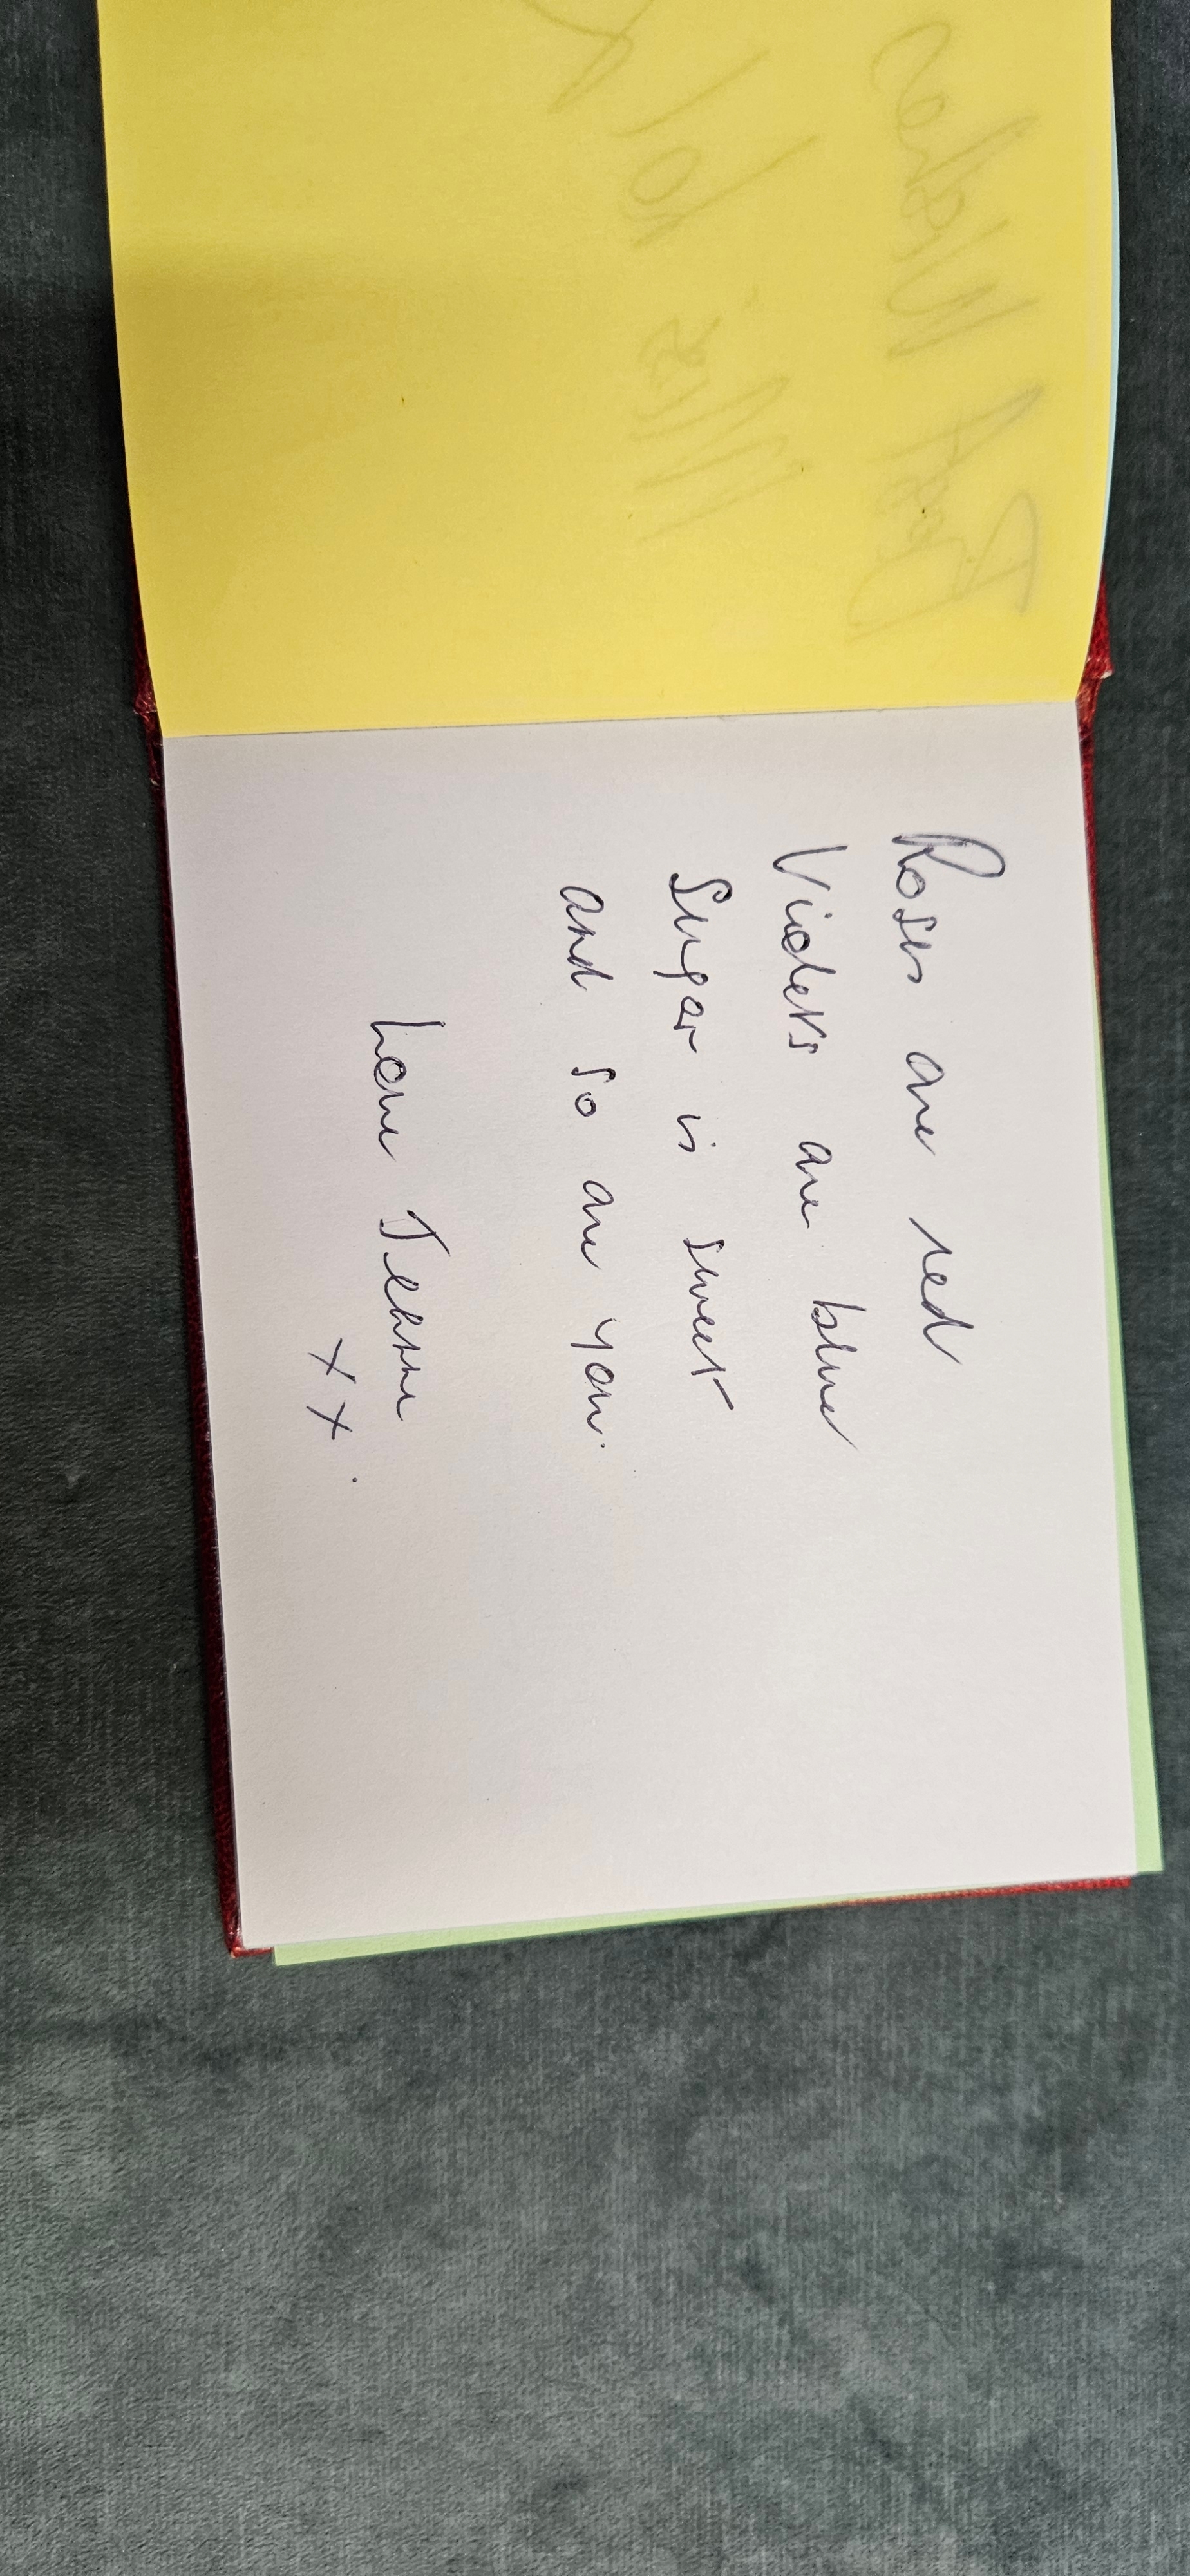 Roses are red
Violets are blue
Sugar is sweet
and so are you.
Love Jeanne
x x .
Best Wishes